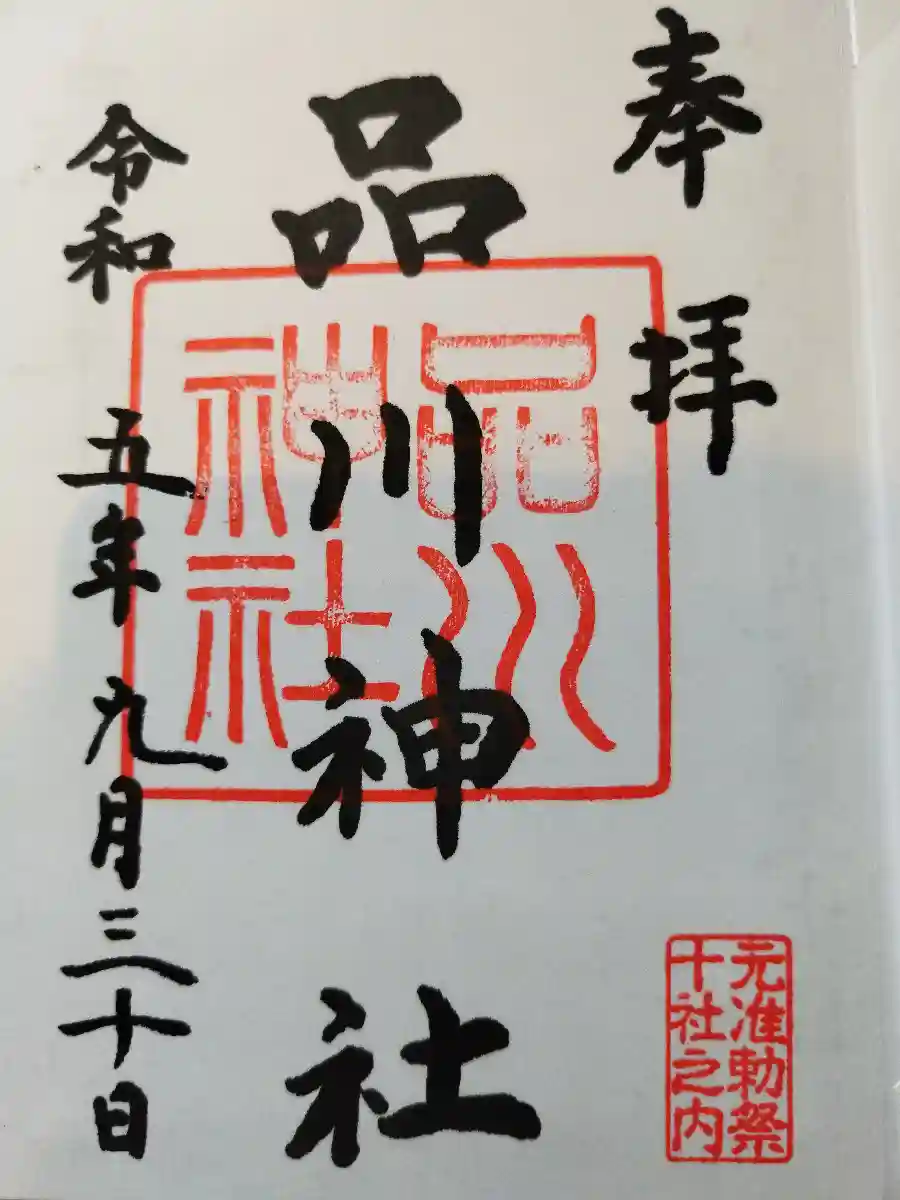 奉拝
品川神社
令和五年九月三十日
品川
神社
元准勅祭
十社之内